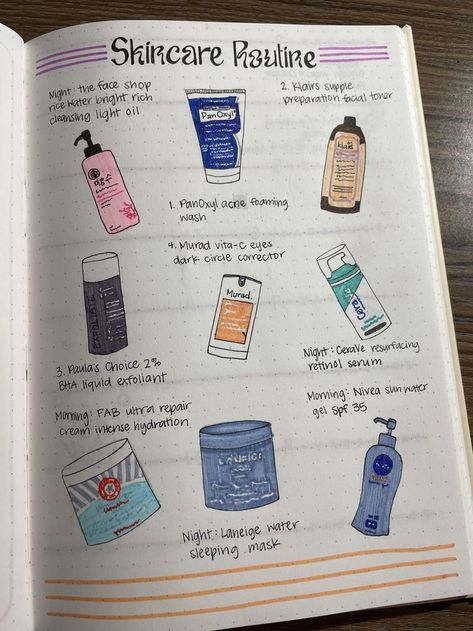 Skincare Routine
Night: the face shop
rice water bright rich
cleansing light oil
PanOxyl
2. Klairs supple
preparation facial toner
klairs
1. PanOxyl acne foaming
wash
4. Murad vita-C eyes
dark circle corrector
EXFOLIATE
Murad.
3. Paula's Choice 2%
BHA liquid exfoliant
Night: CeraVe resurfacing
retinol serum
Morning: FAB ultra repair
cream intense hydration
Morning: Nivea sun water
gel spf 35
Night: Laneige water
sleeping mask